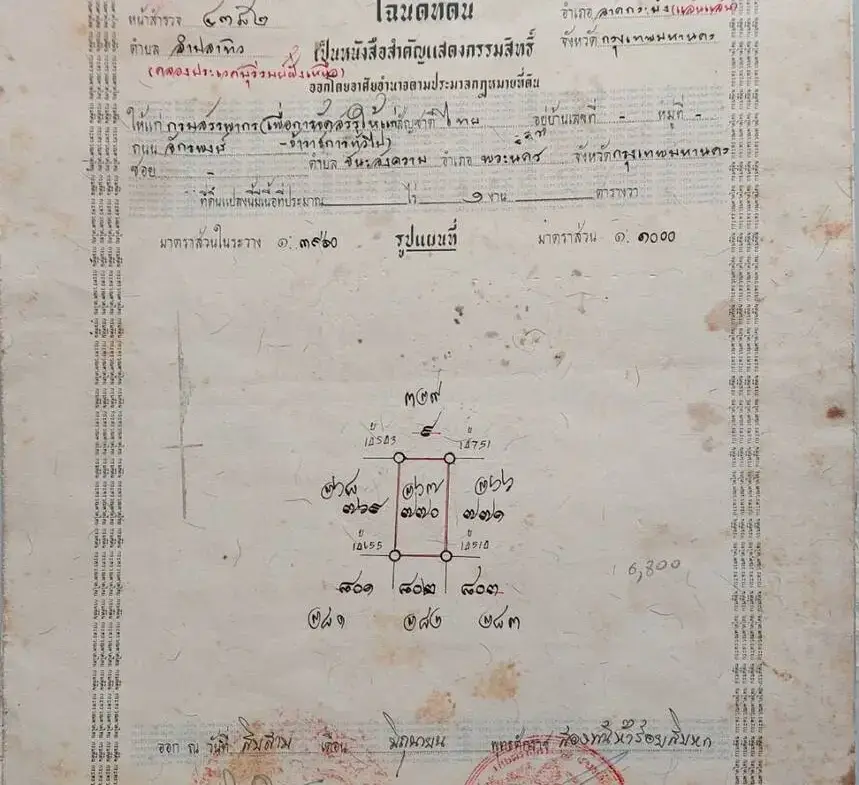 โฉนดที่ดิน
หน้าสำรวจ ๔๓๘๒
อำเภอ ลาดกระบัง
ตำบล ลำปลาทิว
เป็นหนังสือสำคัญแสดงกรรมสิทธิ์
จังหวัด กรุงเทพมหานคร
(คลองประเวศบุรีรมย์ฝั่งเหนือ)
ออกโดยอาศัยอำนาจตามประมวลกฎหมายที่ดิน
ให้แก่ กรมสรรพากร (เพื่อการจัดสรรให้แก่ สัญชาติ ไทย อยู่บ้านเลขที่ - หมู่ที่ -
ถนน จักรพงษ์ - ข้าราชการทั่วไป)
ซอย - ตำบล ชนะสงคราม อำเภอ พระนคร จังหวัด กรุงเทพมหานคร
ที่ดินแปลงนี้มีเนื้อที่ประมาณ ไร่ ๑ งาน ตารางวา
มาตราส่วนในระวาง ๑: ๓๙๖๐ รูปแผนที่ มาตราส่วน ๑: ๑๐๐๐
๓๒๙
๙
๒๖๘ ๒๖๗ ๒๖๖
๗๖๙ ๗๗๐ ๗๗๑
6,800
๘๐๑ ๘๐๒ ๘๐๓
๒๘๑ ๒๘๒ ๒๘๓
ออก ณ วันที่ สิบสาม เดือน มิถุนายน พุทธศักราช สองพันห้าร้อยสิบหก